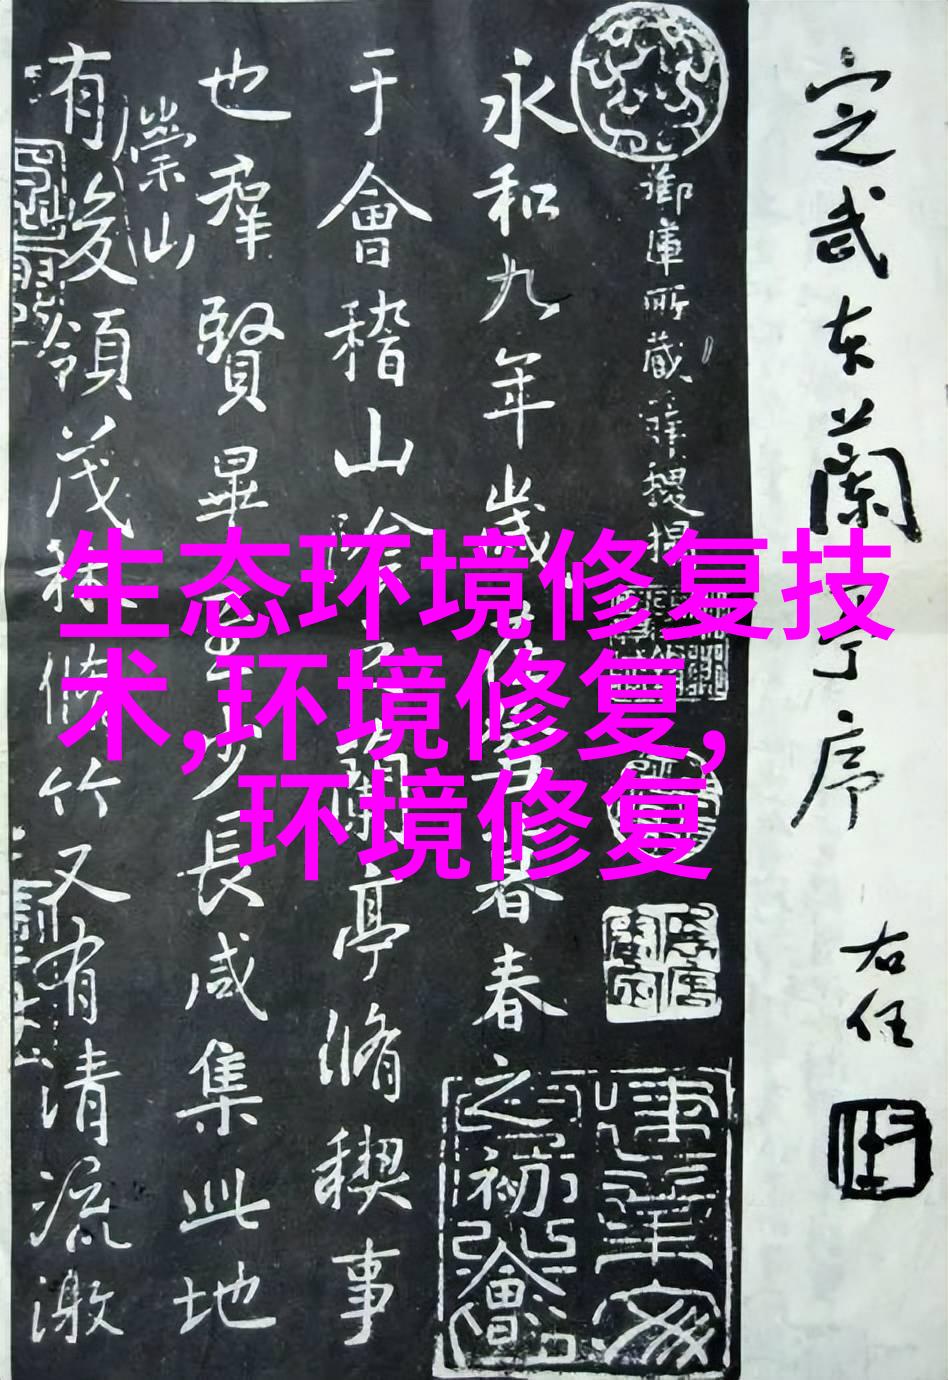 定武本蘭亭序
右任
御庫所藏
永和九年歲
暮春春之初會
于會稽山陰之蘭亭脩稧事
也羣賢畢至少長咸集此地
有
崇山
夋領茂林脩竹又有清流激
生态环境修复技
术,环境修复,
环境修复